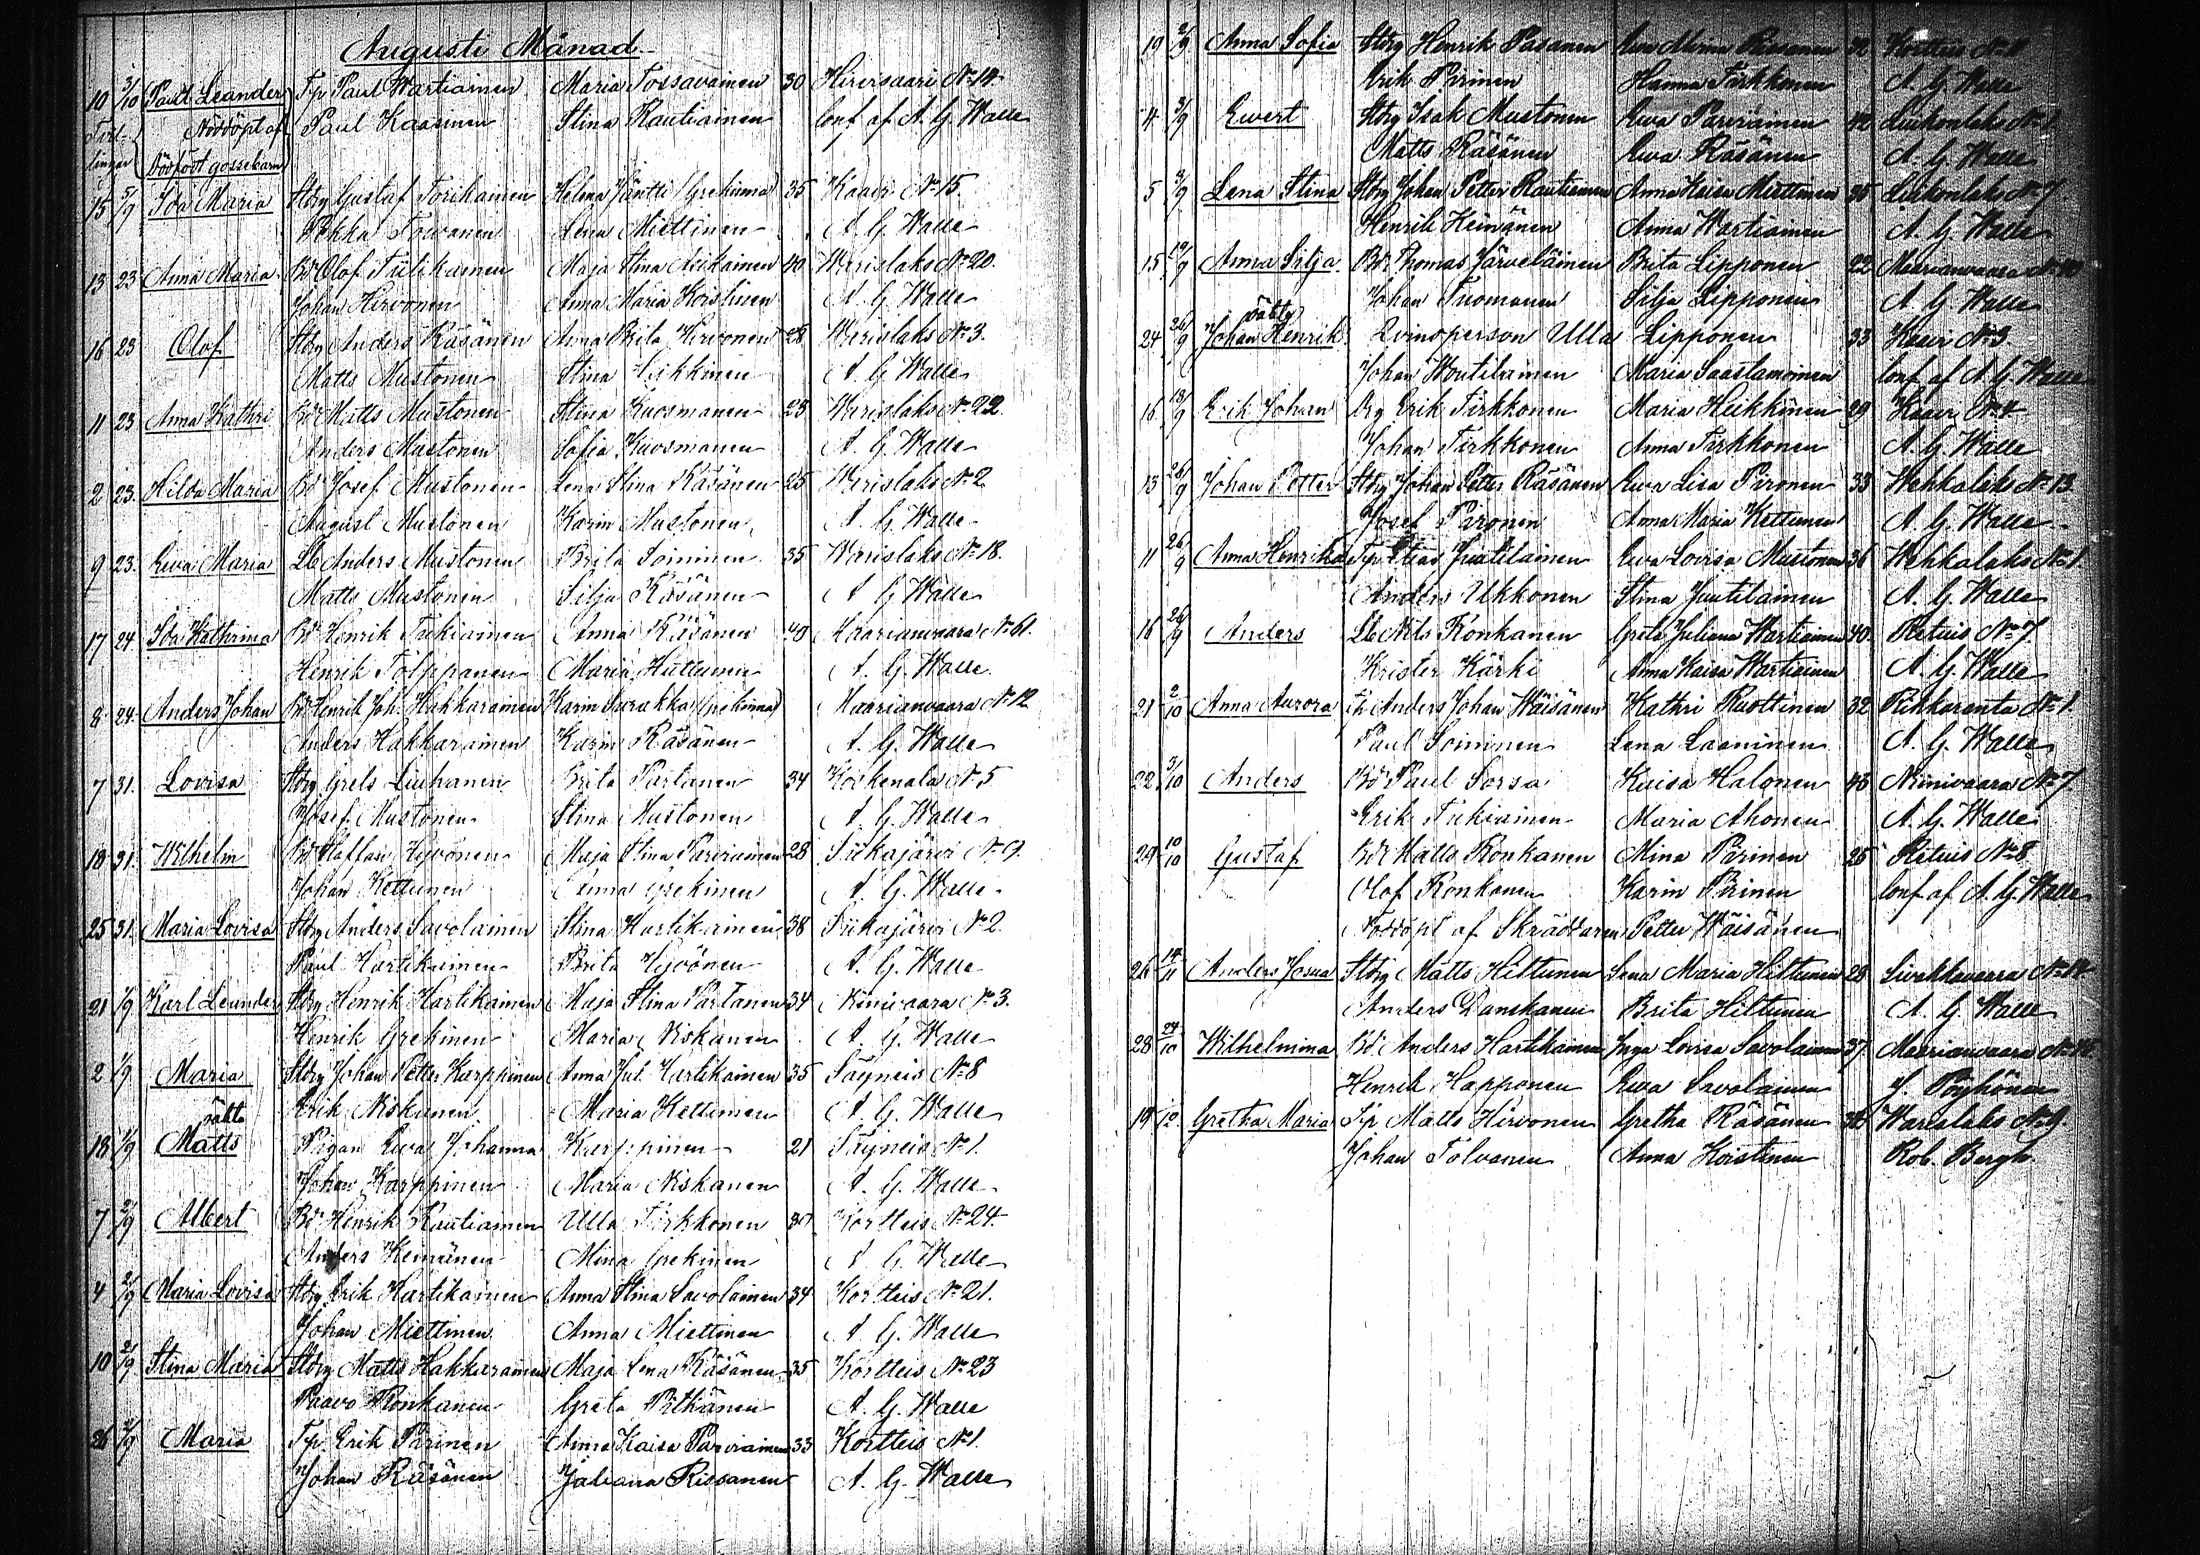 Augusti Månad
10 3/10 Paul Leander Tp Paul Wartiainen Maria Tossavainen 30 Hirvisaari No 14
Nöddöpt af Paul Kaasinen Stina Rautiainen Conf af A. G. Walle
Dödfödt gossebarn
15 5/9 Ida Maria Stbg Gustaf Torikainen Helena Jäntti (Grekinna) 35 Kaavi No 15.
Pekka Toivanen Lena Miettinen A. G. Walle
13 23 Anna Maria Bd Olof Tiilikainen Maja Stina 40 Werislaks No 20.
Johan Hirvonen Anna Maria Koistinen A. G. Walle
16 23 Olof Stbg Anders Räsänen Anna Brita Hirvonen 28 Werislaks No 3.
Matts Mustonen Stina A. G. Walle
11 23 Anna Kathri Bd Matts Mustonen Stina Kuosmanen 23 Werislaks No 22.
Anders Mustonen Sofia Kuosmanen A. G. Walle
2 23. Hilda Maria Bd Josef Mustonen Lena Stina Räsänen 25 Werislaks No 2
August Mustonen Karin Mustonen A. G. Walle
9 23. Ewa Maria Lb Anders Mustonen Brita Soininen 35 Werislaks No 18.
Matts Mustonen Silja Räsänen A. G. Walle
17 24 Ida Kathrina Bd Henrik Tukiainen Anna Räsänen 40 Maarianvaara No 61.
Henrik Tolppanen Maria Huttunen A. G. Walle.
8 24. Anders Johan Bd Henrik Joh. Hakkarainen Karin Surakka (Grekinna) Maarianvaara No 12
Anders Hakkarainen Karin Räsänen A. G. Walle
7 31. Lovisa Stbg Grels Liuhanen Brita Partanen 34 Koskenala No 5
Josef Mustonen Stina Mustonen A. G. Walle
18 31. Wilhelm Bd Staffan Hyvönen Maja Stina Parviainen 28 Siikajärvi No 9.
Johan Kettunen Anna Grekinen A. G. Walle
25 31. Maria Lovisa Stbg Anders Savolainen Stina Hartikainen 38 Siikajärvi No 2.
Paul Hartikainen Brita Hyvönen A. G. Walle
21 1/9 Karl Leander Stbg Henrik Hartikainen Maja Stina Partanen 34 Niinivaara No 3.
Henrik Grekinen Maria Niskanen A. G. Walle
2 1/9 Maria Stbg Johan Petter Karppinen Anna Jul. Hartikainen 35 Säyneis No 8
Erik Niskanen Maria Kettunen A. G. Walle
oäkta
18 1/9 Matts Pigan Ewa Johanna Karppinen 21 Säyneis No 1.
Johan Karppinen Maria Niskanen A. G. Walle
7 2/9 Albert Bd Henrik Rautiainen Ulla Tirkkonen Kortteis No 24
Anders Keinänen Mina Grekinen A. G. Walle
4 2/9 Maria Lovisa Stbg Erik Hartikainen Anna Stina Savolainen 34 Kortteis No 21.
Johan Miettinen Anna Miettinen A. G. Walle
10 2/9 Stina Maria Stbg Matts Hakkarainen Maja Lena Räsänen 35 Kortteis No 23
Paavo Ronkanen Greta Pitkänen A. G. Walle
26 2/9 Maria Tp. Erik Pirinen Anna Kaisa Parviainen 33 Kortteis No 1.
Johan Räsänen Juliana Rissanen A. G. Walle
19 2/9 Anna Sofia Stbg Henrik Pasanen Kortteis
Erik Pirinen Hanna Tirkkonen A. G. Walle
4 3/9 Ewert Stbg Isak Mustonen Ewa Parviainen 42 Luikonlaks No 1
Matts Räsänen Ewa Räsänen A. G. Walle
5 3/9 Lena Stina Stbg Johan Petter Rautiainen Anna Kaisa Miettinen 35 Luikonlaks No 7
Henrik Keinänen Anna Wartiainen A. G. Walle
15 10/9 Anna Silja Bd Thomas Järveläinen Brita Lipponen 22 Maarianvaara
Johan Tuomanen Silja Lipponen A. G. Walle
oäkta
24 26/9 Johan Henrik Qvinsperson Ulla Lipponen 33 Kaavi No 3
Johan Woutilainen Maria Saastamoinen Conf af A. G. Walle
16 18/9 Erik Johan Erik Tirkkonen Maria Heikkinen 29 Kaavi No 4
Johan Tirkkonen Anna Tirkkonen A. G. Walle
13 26/9 Johan Petter Stbg Johan Petter Räsänen Ewa Lisa Piironen 33 Wehkalaks No 13
Josef Piironen Anna Maria Kettunen A. G. Walle
11 26/9 Anna Henrika Tp Elias Juutilainen Ewa Lovisa Mustonen 36 Wehkalaks No 1.
Anders Ukkonen Stina Juutilainen A. G. Walle
16 26/9 Anders Lb Nils Ronkanen Greta Juliana Wartiainen 40. Retuis No 7.
Krister Kärki Anna Kaisa Wartiainen A. G. Walle
21 2/10 Anna Aurora Tp Anders Johan Wäisänen Kathri Ruottinen 32 Rikkaranta No 1.
Paul Soininen Lena Laaninen A. G. Walle
22 3/10 Anders Bd Paul Sorsa Kaisa Halonen 43 Niinivaara No 7.
Erik Tukiainen Maria Ahonen A. G. Walle
29 10/10 Gustaf Bd Matts Ronkanen Mina Pirinen 25 Retuis No 8.
Olof Ronkanen Karin Pirinen Conf af A. G. Walle
Nöddöpt af Skräddaren Petter Wäisänen
26 14/11 Anders Josua Stbg Matts Hiltunen Lena Maria Hiltunen 28 Sivakkavaara No 14
Anders Danskanen Brita Hiltunen A. G. Walle
28 24/10 Wilhelmina Bd Anders Hartikainen Inga Lovisa Savolainen 37. Maarianvaara
Henrik Happonen Ewa Savolainen J. Pöyhönen
19 12. Gretha Maria Tp Matts Hirvonen Gretha Räsänen Warislaks No 9.
Johan Tolvanen Anna Koistinen Rob. Bergh